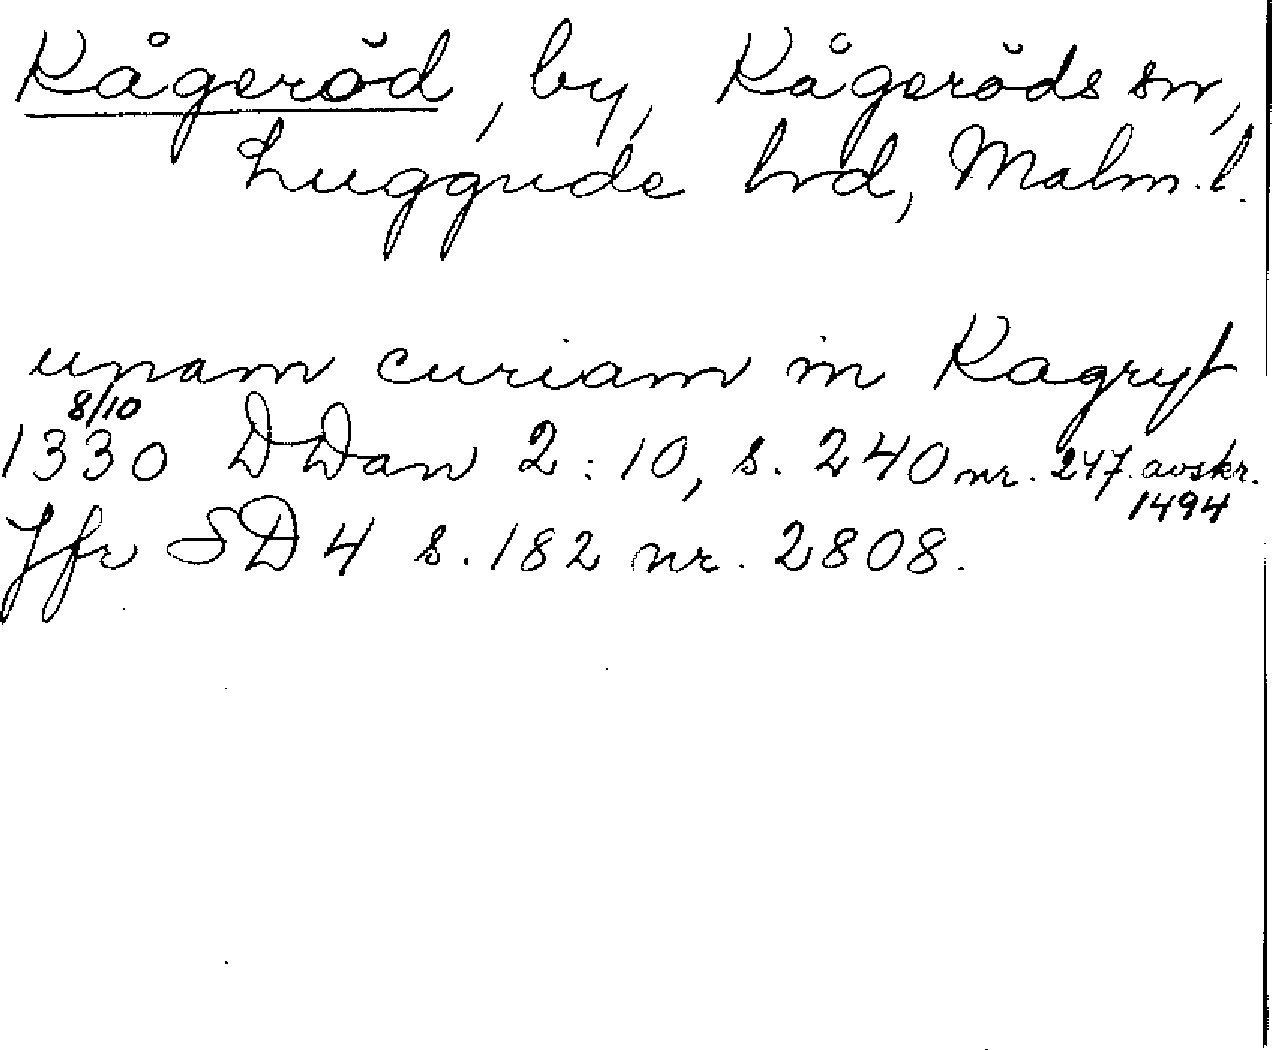 Kågeröd, by, Kågeröds sn,
Luggude hrd, Malm. l.
unam curiam in Kagryt
8/10
1330 DDan 2:10, s. 240 nr. 247. avskr.
1494
Jfr SD 4 s. 182 nr. 2808.